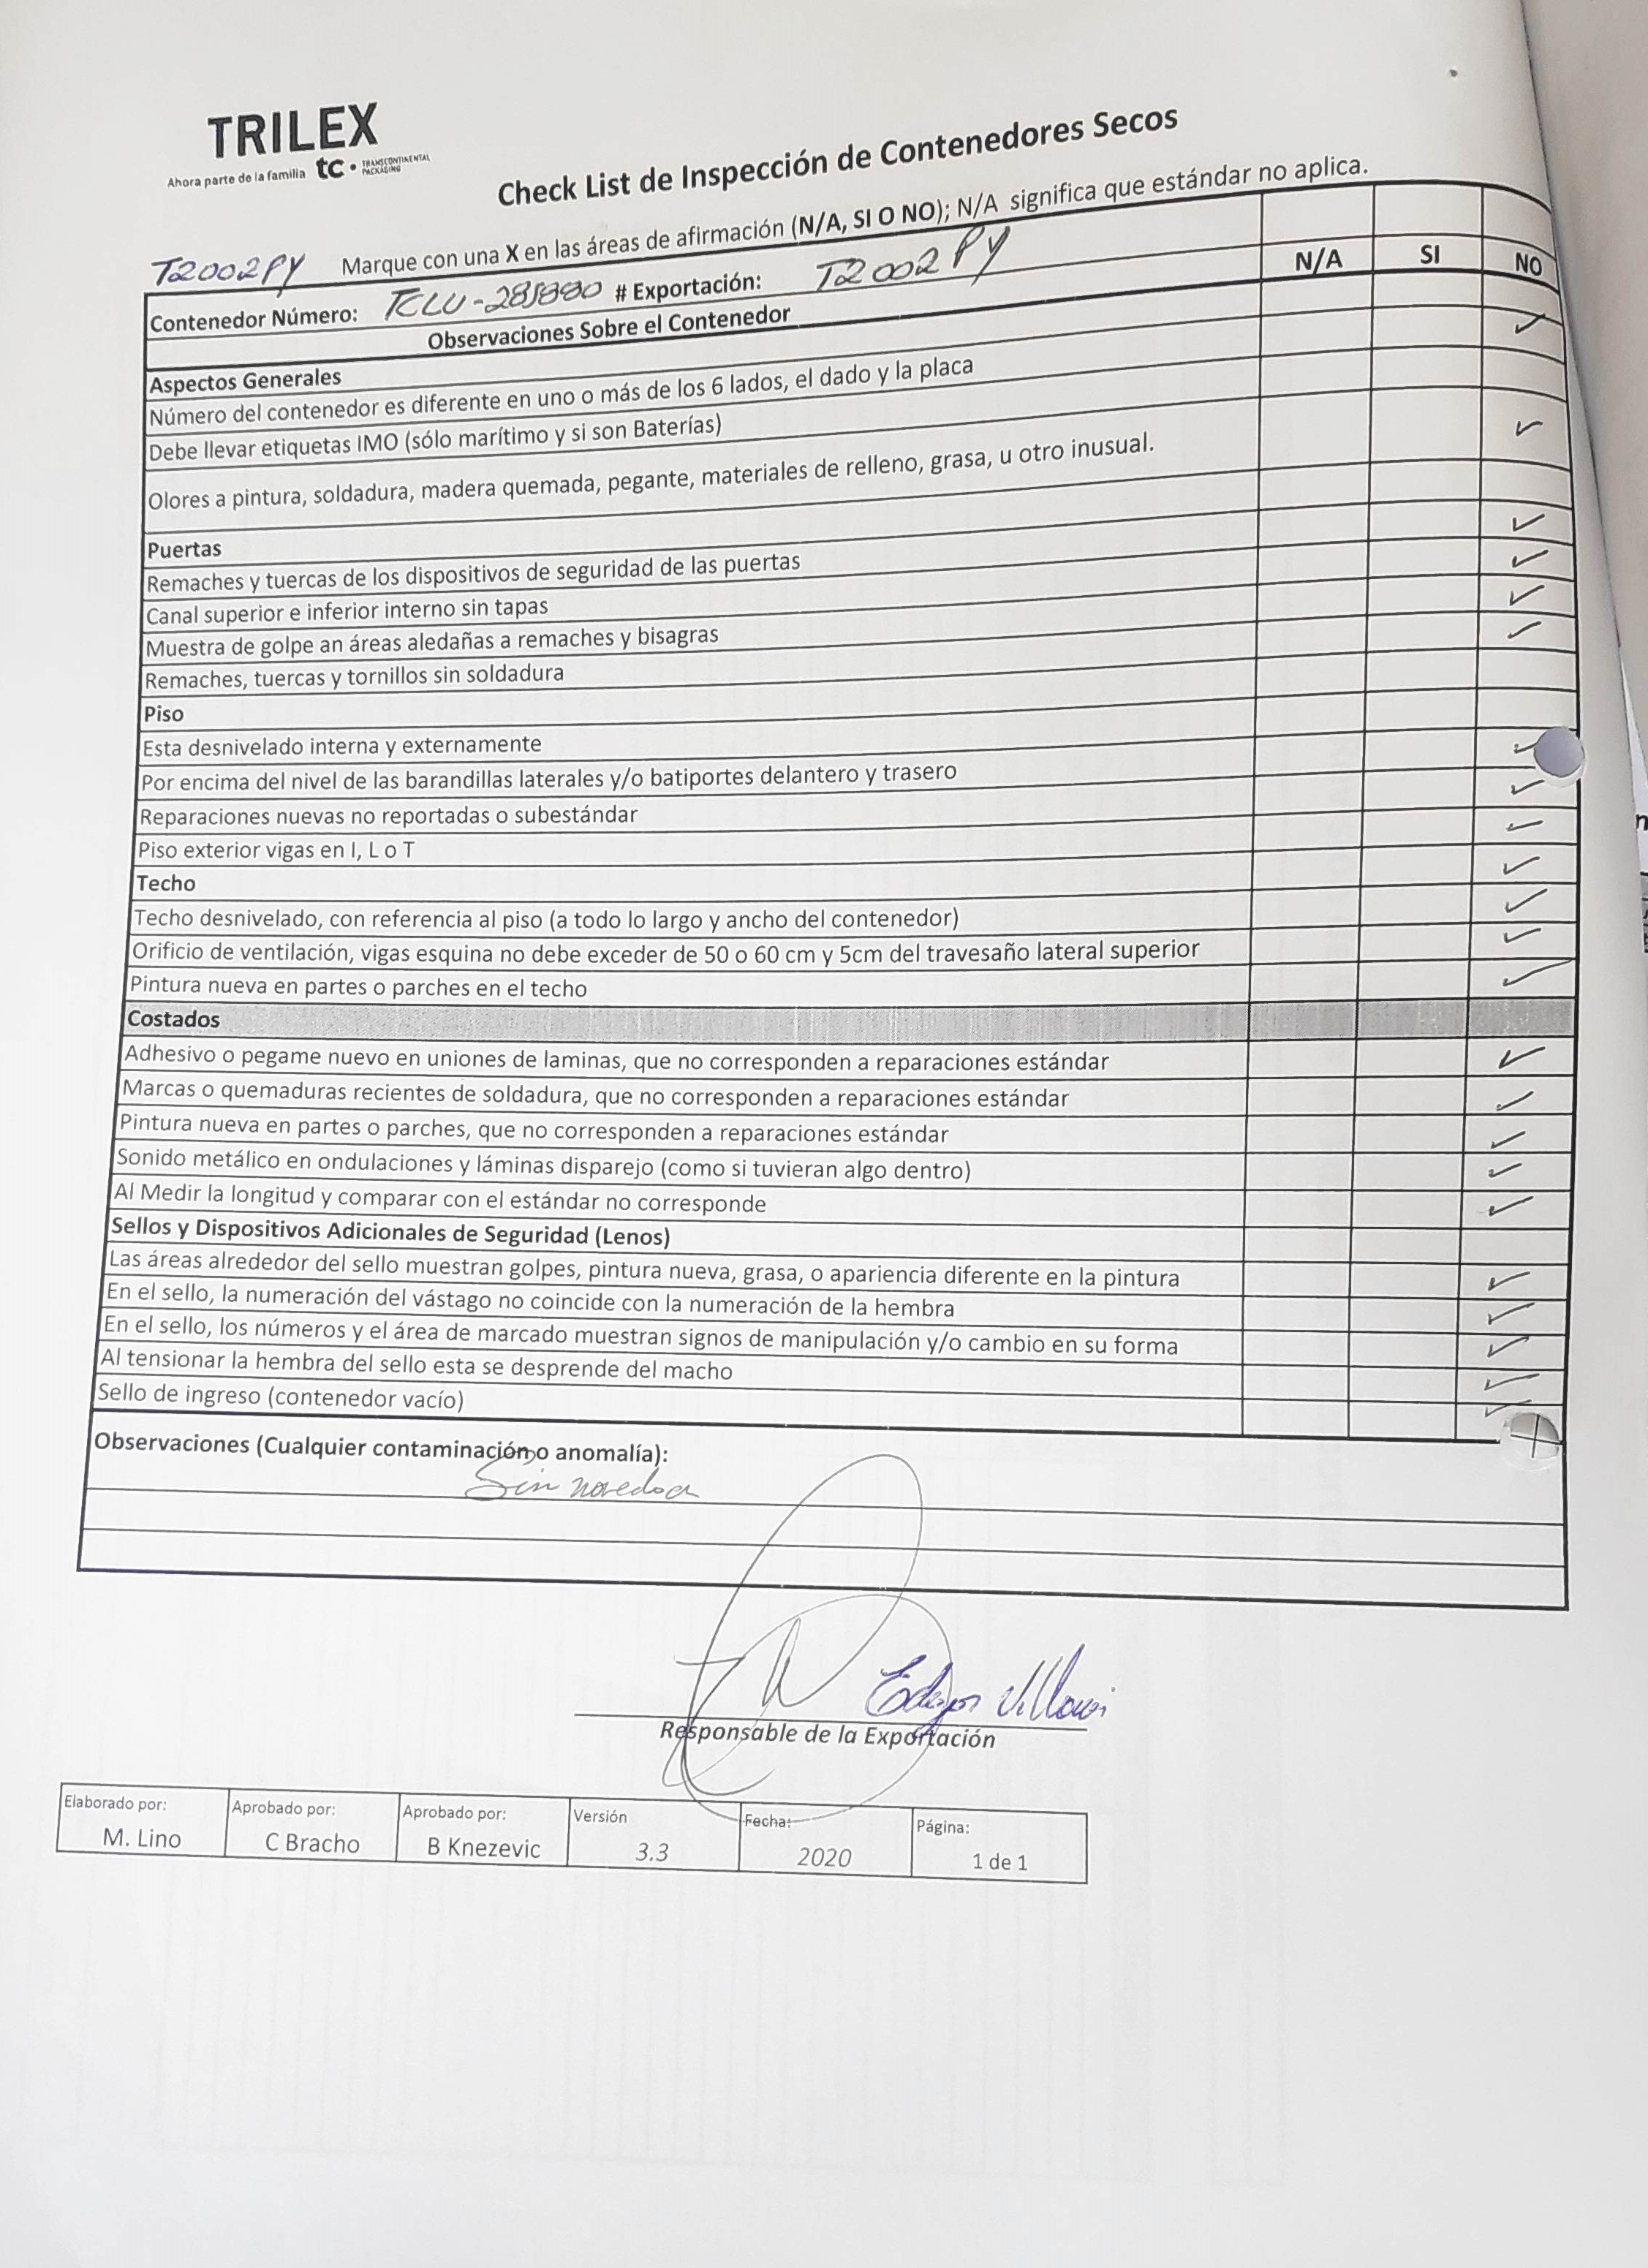 TRILEX
Ahora parte de la familia tc • TRANSCONTINENTAL PACKAGING
Check List de Inspección de Contenedores Secos
T2002PY Marque con una X en las áreas de afirmación (N/A, SI O NO); N/A significa que estándar no aplica.
Contenedor Número: TCLU-285880 # Exportación: T2002PY
Observaciones Sobre el Contenedor N/A SI NO
Aspectos Generales
Número del contenedor es diferente en uno o más de los 6 lados, el dado y la placa ✓
Debe llevar etiquetas IMO (sólo marítimo y si son Baterías)
Olores a pintura, soldadura, madera quemada, pegante, materiales de relleno, grasa, u otro inusual. ✓
Puertas
Remaches y tuercas de los dispositivos de seguridad de las puertas ✓
Canal superior e inferior interno sin tapas ✓
Muestra de golpe an áreas aledañas a remaches y bisagras ✓
Remaches, tuercas y tornillos sin soldadura ✓
Piso
Esta desnivelado interna y externamente ✓
Por encima del nivel de las barandillas laterales y/o batiportes delantero y trasero ✓
Reparaciones nuevas no reportadas o subestándar ✓
Piso exterior vigas en I, L o T ✓
Techo
Techo desnivelado, con referencia al piso (a todo lo largo y ancho del contenedor) ✓
Orificio de ventilación, vigas esquina no debe exceder de 50 o 60 cm y 5cm del travesaño lateral superior ✓
Pintura nueva en partes o parches en el techo ✓
Costados
Adhesivo o pegame nuevo en uniones de laminas, que no corresponden a reparaciones estándar ✓
Marcas o quemaduras recientes de soldadura, que no corresponden a reparaciones estándar ✓
Pintura nueva en partes o parches, que no corresponden a reparaciones estándar ✓
Sonido metálico en ondulaciones y láminas disparejo (como si tuvieran algo dentro) ✓
Al Medir la longitud y comparar con el estándar no corresponde ✓
Sellos y Dispositivos Adicionales de Seguridad (Lenos)
Las áreas alrededor del sello muestran golpes, pintura nueva, grasa, o apariencia diferente en la pintura ✓
En el sello, la numeración del vástago no coincide con la numeración de la hembra ✓
En el sello, los números y el área de marcado muestran signos de manipulación y/o cambio en su forma ✓
Al tensionar la hembra del sello esta se desprende del macho ✓
Sello de ingreso (contenedor vacío) ✓
Observaciones (Cualquier contaminación o anomalía):
Sin novedad
Responsable de la Exportación
Elaborado por: Aprobado por: Aprobado por: Versión Fecha: Página:
M. Lino C Bracho B Knezevic 3.3 2020 1 de 1